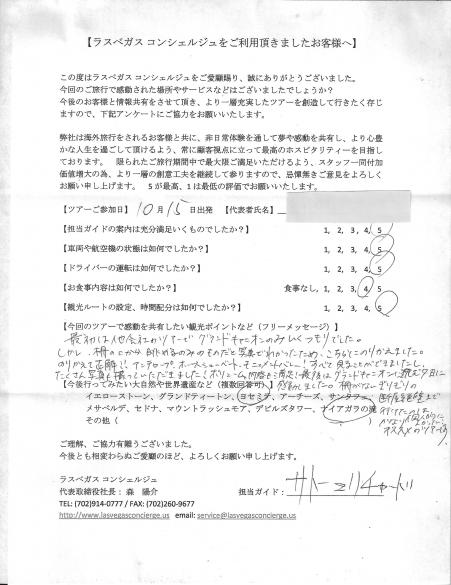 【ラスベガス コンシェルジュをご利用頂きましたお客様へ】
この度はラスベガス コンシェルジュをご愛顧賜り、誠にありがとうございました。
今回のご旅行で感動された場所やサービスなどはございましたでしょうか？
今後のお客様と情報共有をさせて頂き、より一層充実したツアーを創造して行きたく存じ
ますので、下記アンケートにご協力をお願いいたします。
弊社は海外旅行をされるお客様と共に、非日常体験を通して夢や感動を共有し、より心豊
かな人生を過ごして頂けるよう、常に顧客視点に立って最高のホスピタリティーを目指し
ております。 限られたご旅行期間中で最大限ご満足いただけるよう、スタッフ一同付加
価値増大の為、より一層の創意工夫を継続して参りますので、忌憚無きご意見をよろしく
お願い申し上げます。 5が最高、1は最低の評価でお願いいたします。
【ツアーご参加日】 10月 15日出発 【代表者氏名】
【担当ガイドの案内は充分満足いくものでしたか？】 1, 2, 3, 4, 5
【車両や航空機の状態は如何でしたか？】 1, 2, 3, 4, 5
【ドライバーの運転は如何でしたか？】 1, 2, 3, 4, 5
【お食事内容は如何でしたか？】 食事なし, 1, 2, 3, 4, 5
【観光ルートの設定、時間配分は如何でしたか？】 1, 2, 3, 4, 5
【今回のツアーで感動を共有したい観光ポイントなど（フリーメッセージ）】
最初は他会社のツアーで グランドキャニオンのみ いくつもりでした。
しかし 柵の中から 眺めるのみのものだと写真でわかったため、こちらにのりかえました。
のりかえて正解!! アンテロープ、ホースシューベント、モニュメントバレー！すべて見ることができましたし、
たくさん写真も撮っていただきました！ボリューム 内容も大満足！最後は グランドキャニオンから見る夕日に
【今後行ってみたい大自然や世界遺産など（複数回答可）】 感動しました。柵がないギリギリの
イエローストーン、グランドティートン、ヨセミテ、アーチーズ、サンタフェ、 断崖絶壁まで
メサベルデ、セドナ、マウントラッシュモア、デビルズタワー、ナイアガラの滝 行けたのは
その他（ ） オススメのツアー
ご理解、ご協力有難うございました。
今後とも相変わらぬご愛顧のほど、よろしくお願い申し上げます。
ラスベガス コンシェルジュ
代表取締役社長： 森 陽介 担当ガイド： サトーミリチャード
TEL: (702)914-0777 / FAX: (702)260-9677
http://www.lasvegasconcierge.us email: service@lasvegasconcierge.us